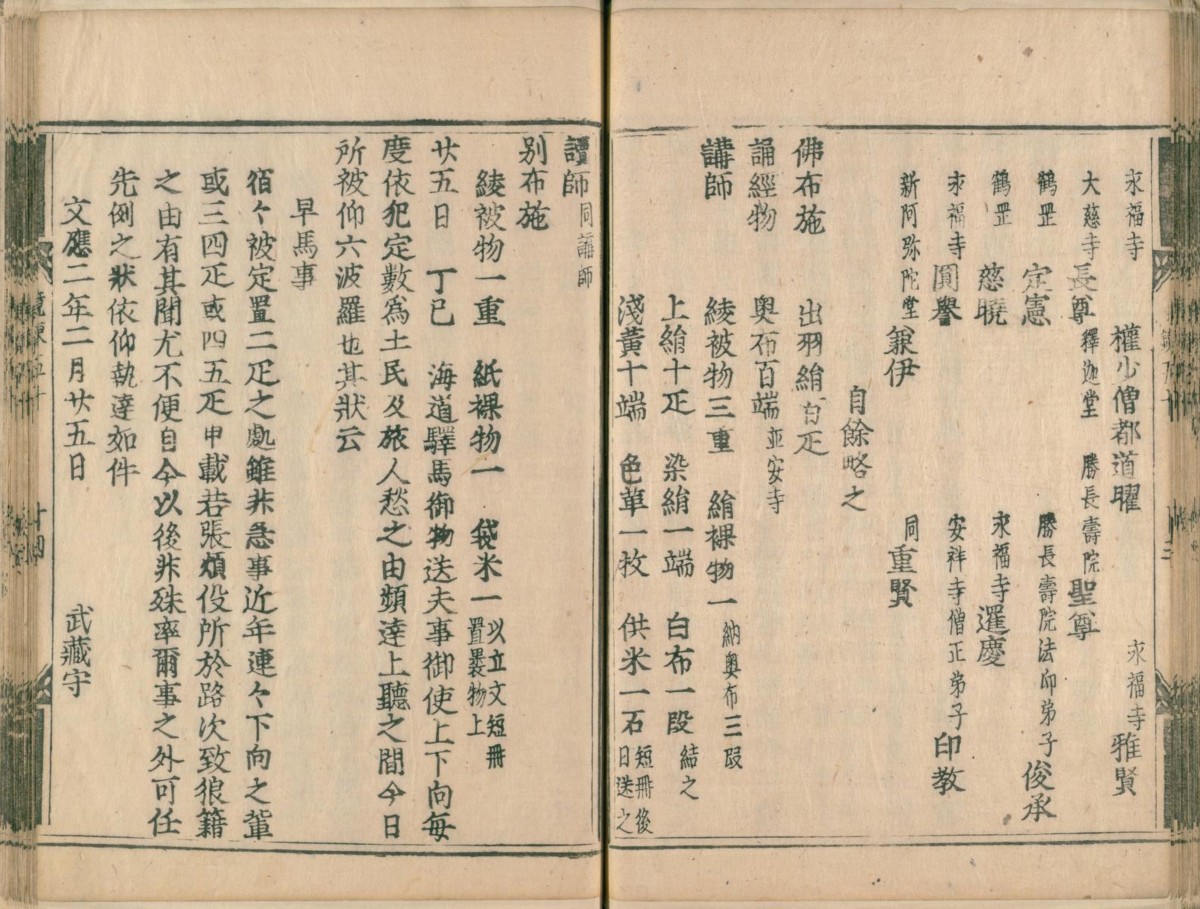 永福寺 權少僧都道曜 永福寺 雅賢
大慈寺 長尊 釋迦堂 勝長壽院 聖尊
鶴罡 定憲 勝長壽院法印弟子 俊承
鶴罡 慈曉 永福寺 暹慶
永福寺 圓譽 安祥寺僧正弟子 印教
新阿弥陀堂 兼伊 同 重賢
自餘略之
佛布施 出羽絹百疋
誦經物 奥布百端 並安寺
講師 綾被物三重 絹裸物一 納奥布三段
上絹十疋 染絹一端 白布一段 結之
淺黄十端 色革一枚 供米一石 短冊後日送之
讀師 同講師
別布施
綾被物一重 紙裸物一 袋米一 以立文短冊置褁物上
廿五日 丁巳 海道驛馬御物送夫事御使上下向每
度依犯定數爲土民及旅人愁之由頻達上聽之間今日
所被仰六波羅也其狀云
早馬事
宿々被定置二疋之處雖非急事近年連々下向之輩
或三四疋或四五疋申載若張煩役所於路次致狼籍
之由有其聞尤不便自今以後非殊率爾事之外可任
先例之狀依仰執達如件
文應二年二月廿五日 武藏守